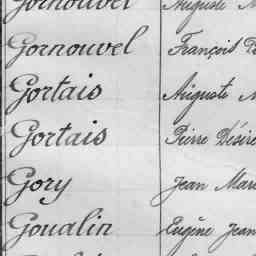 Gornouvel Auguste
Gornouvel François
Gortais Auguste
Gortais Pierre Désiré
Gory Jean Mari
Goualin Eugène Jean